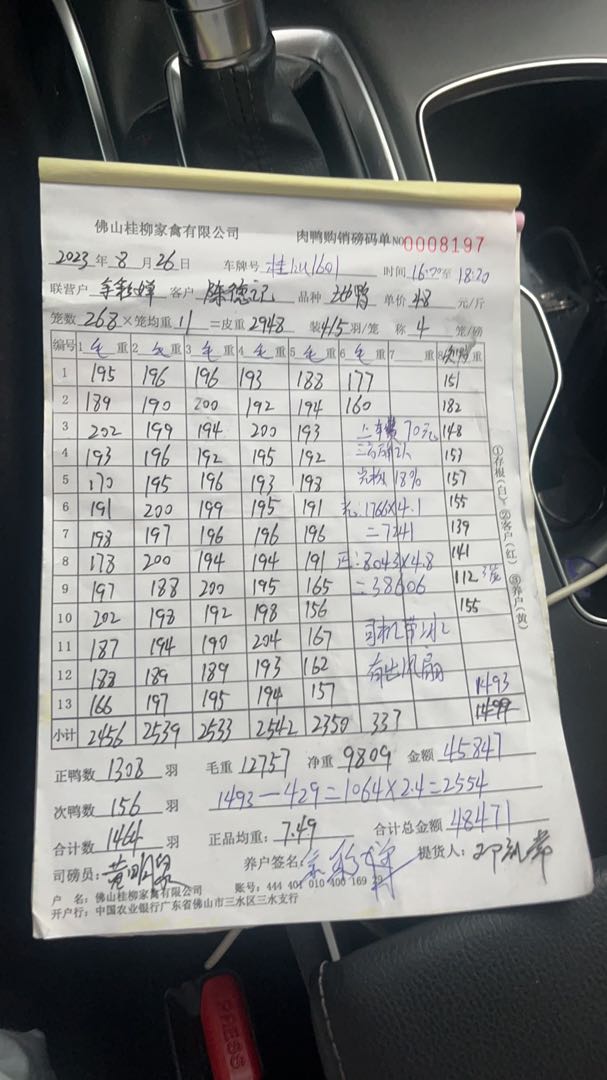 佛山桂柳家禽有限公司 肉鸭购销磅码单 NO 0008197
2023 年 8 月 26 日 车牌号 时间 16:20 至 18:20
联营户 客户 陈德记 品种 单价 4.8 元/斤
笼数 268 × 笼均重 11 = 皮重 2948 装 4/5 羽/笼 称 4 笼/磅
编号 1 毛 重 2 毛 重 3 毛 重 4 毛 重 5 毛 重 6 毛 重 7 重 8 次鸭 重
1 195 196 196 193 188 177 151
2 189 190 200 192 194 160 182
3 202 199 194 200 193 车费70元 148
4 193 196 192 195 192 153
5 170 195 196 193 193 18% 157
6 191 200 199 195 191 1766×4.1 155
7 198 197 196 196 196 =7241 139
8 178 200 194 194 191 正:8043×4.8 141
9 197 188 200 195 165 =38606 112
10 202 198 192 198 156 155
11 187 194 190 204 167 司机带
12 188 189 189 193 162 有出风扇
13 166 197 195 194 157 1493
小计 2456 2539 2533 2542 2350 337 1499
正鸭数 1308 羽 毛重 12757 净重 9809 金额 45847
次鸭数 156 羽 1493-429=1064×2.4=2554
合计数 1464 羽 正品均重: 7.49 合计总金额 48471
司磅员: 养户签名: 提货人:
户 名: 佛山桂柳家禽有限公司 账号: 444 401 010 400 169 29
开户行: 中国农业银行广东省佛山市三水区三水支行
①存根(白)②客户(红)③养户(黄)
PRESS